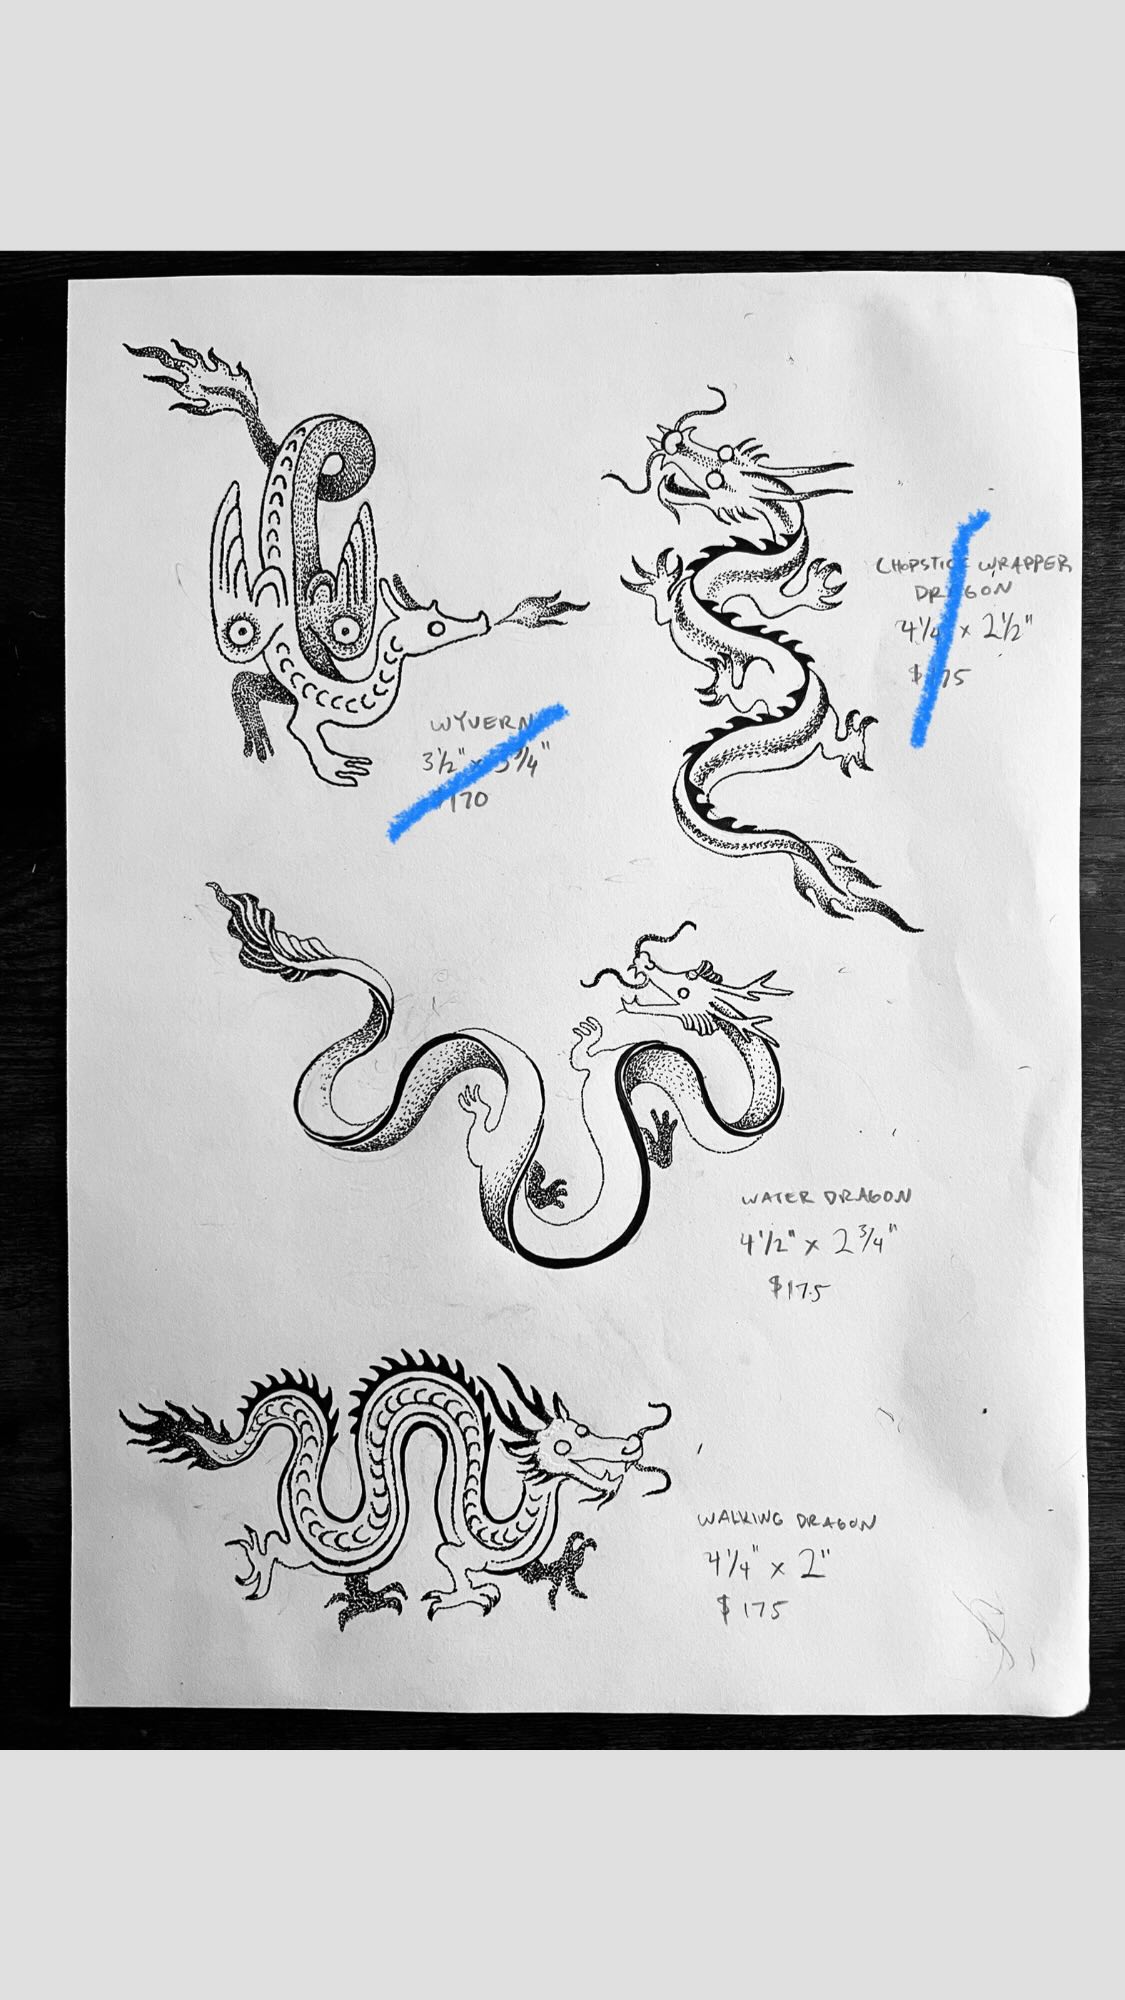 WYVERN
3 1/2" x 3 1/4"
170
CHOPSTICK WRAPPER
DRAGON
4 1/4 x 2 1/2"
$175
WATER DRAGON
4 1/2" x 2 3/4"
$175
WALKING DRAGON
4 1/4" x 2"
$175